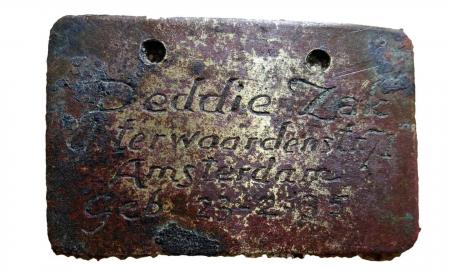 Deddie Zak
Uiterwaardenstr
Amsterdam
Geb. 23-2-35